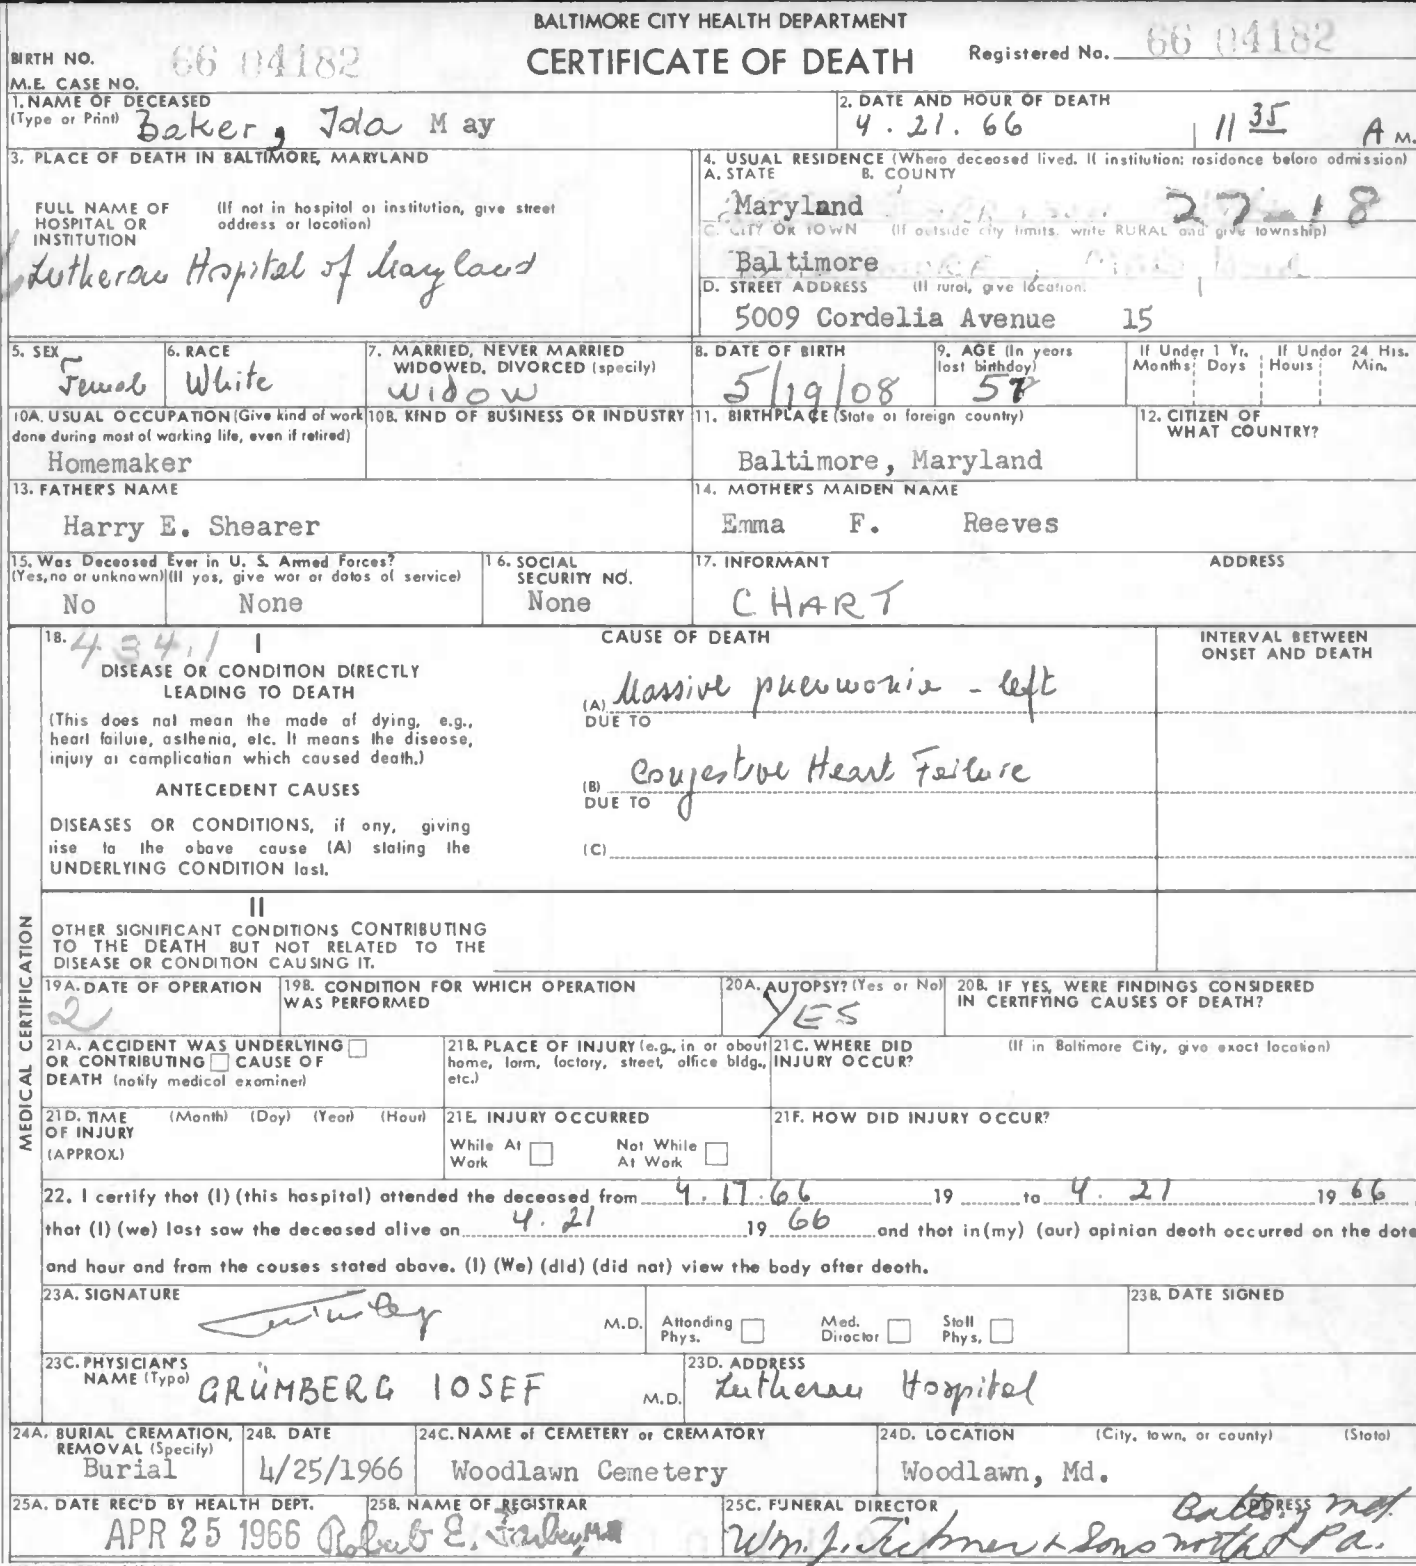 BALTIMORE CITY HEALTH DEPARTMENT
CERTIFICATE OF DEATH
BIRTH NO. 66 04182
Registered No. 66 04182
M.E. CASE NO.
1. NAME OF DECEASED
(Type or Print) Baker, Ida May
2. DATE AND HOUR OF DEATH
4 . 21 . 66 11 35 A M.
3. PLACE OF DEATH IN BALTIMORE, MARYLAND
FULL NAME OF HOSPITAL OR INSTITUTION
(If not in hospital or institution, give street address or location)
Lutheran Hospital of Maryland
4. USUAL RESIDENCE (Where deceased lived. If institution: residence before admission)
A. STATE B. COUNTY
Maryland 27-18
C. CITY OR TOWN (If outside city limits, write RURAL and give township)
Baltimore
D. STREET ADDRESS (If rural, give location)
5009 Cordelia Avenue 15
5. SEX
Female
6. RACE
White
7. MARRIED, NEVER MARRIED
WIDOWED, DIVORCED (specify)
WIDOW
8. DATE OF BIRTH
5/19/08
9. AGE (In years
last birthday)
57
If Under 1 Yr. If Under 24 Hrs.
Months Days Hours Min.
10A. USUAL OCCUPATION (Give kind of work
done during most of working life, even if retired)
Homemaker
10B. KIND OF BUSINESS OR INDUSTRY
11. BIRTHPLACE (State or foreign country)
Baltimore, Maryland
12. CITIZEN OF
WHAT COUNTRY?
13. FATHER'S NAME
Harry E. Shearer
14. MOTHER'S MAIDEN NAME
Emma F. Reeves
15. Was Deceased Ever in U. S. Armed Forces?
(Yes, no or unknown) (If yes, give war or dates of service)
No None
16. SOCIAL
SECURITY NO.
None
17. INFORMANT ADDRESS
CHART
MEDICAL CERTIFICATION
18. 434.1 I
CAUSE OF DEATH
INTERVAL BETWEEN
ONSET AND DEATH
DISEASE OR CONDITION DIRECTLY
LEADING TO DEATH
(This does not mean the mode of dying, e.g.,
heart failure, asthenia, etc. It means the disease,
injury or complication which caused death.)
(A) Massive pneumonia - left
DUE TO
ANTECEDENT CAUSES
(B) Congestive Heart Failure
DUE TO
DISEASES OR CONDITIONS, if any, giving
rise to the above cause (A) stating the
UNDERLYING CONDITION last.
(C)
II
OTHER SIGNIFICANT CONDITIONS CONTRIBUTING
TO THE DEATH BUT NOT RELATED TO THE
DISEASE OR CONDITION CAUSING IT.
19A. DATE OF OPERATION
2
19B. CONDITION FOR WHICH OPERATION
WAS PERFORMED
20A. AUTOPSY? (Yes or No)
YES
20B. IF YES, WERE FINDINGS CONSIDERED
IN CERTIFYING CAUSES OF DEATH?
21A. ACCIDENT WAS UNDERLYING
OR CONTRIBUTING CAUSE OF
DEATH (notify medical examiner)
21B. PLACE OF INJURY (e.g., in or about
home, farm, factory, street, office bldg.,
etc.)
21C. WHERE DID
INJURY OCCUR?
(If in Baltimore City, give exact location)
21D. TIME (Month) (Day) (Year) (Hour)
OF INJURY
(APPROX.)
21E. INJURY OCCURRED
While At Work
Not While At Work
21F. HOW DID INJURY OCCUR?
22. I certify that (I) (this hospital) attended the deceased from 4.17.66 19 to 4. 21 19 66
that (I) (we) last saw the deceased alive on 4. 21 19 66 and that in (my) (our) opinion death occurred on the date
and hour and from the causes stated above. (I) (We) (did) (did not) view the body after death.
23A. SIGNATURE
M.D. Attending Phys. Med. Director Staff Phys.
23B. DATE SIGNED
23C. PHYSICIAN'S
NAME (Type) GRÜMBERG IOSEF M.D.
23D. ADDRESS
Lutheran Hospital
24A. BURIAL CREMATION,
REMOVAL (Specify)
Burial
24B. DATE
4/25/1966
24C. NAME of CEMETERY or CREMATORY
Woodlawn Cemetery
24D. LOCATION (City, town, or county) (State)
Woodlawn, Md.
25A. DATE REC'D BY HEALTH DEPT.
APR 25 1966
25B. NAME OF REGISTRAR
Robert E. Farber, M.D.
25C. FUNERAL DIRECTOR ADDRESS
Balto, Md.
Wm. J. Tickner & Sons North & Pa.